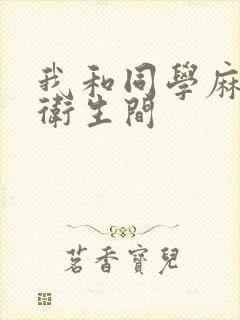 我和同學麻
衛生間
茗香寶兒